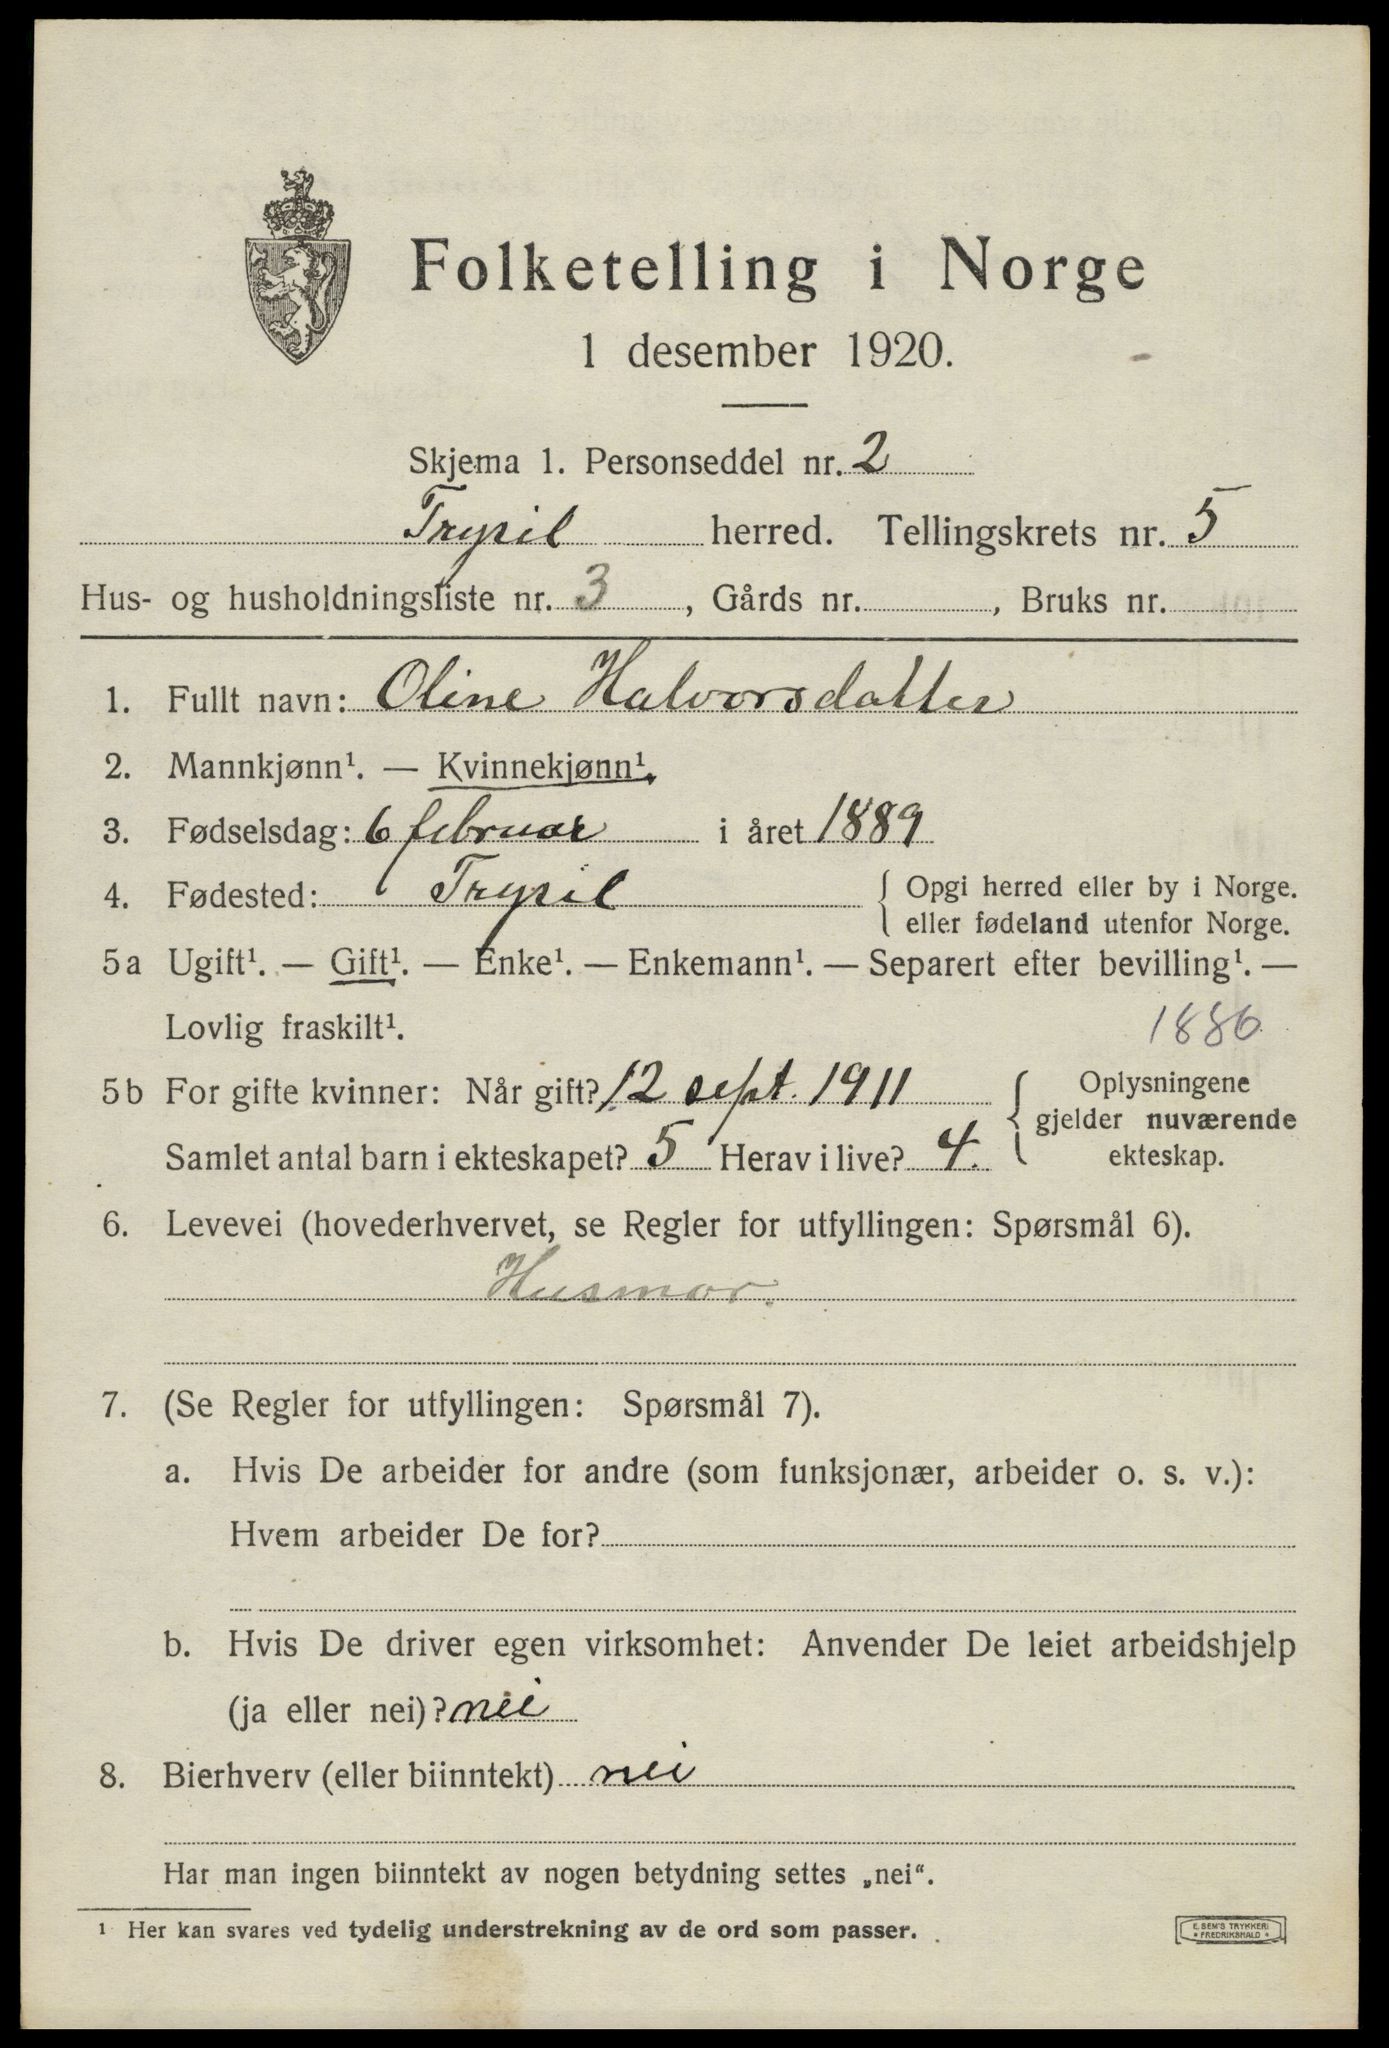 Folketelling i Norge
1 desember 1920.
Skjema 1. Personseddel nr. 2
Trysil herred. Tellingskrets nr. 5
Hus- og husholdningsliste nr. 3, Gårds nr. , Bruks nr.
1. Fullt navn: Oline Halvorsdatter
2. Mannkjønn¹. — Kvinnekjønn¹.
3. Fødselsdag: 6 februar i året 1889
4. Fødested: Trysil { Opgi herred eller by i Norge.
eller fødeland utenfor Norge.
5a Ugift¹. — Gift¹. — Enke¹. — Enkemann¹. — Separert efter bevilling¹. —
Lovlig fraskilt¹. 1886
5b For gifte kvinner: Når gift? 12 sept. 1911 { Oplysningene
gjelder nuværende
Samlet antal barn i ekteskapet? 5 Herav i live? 4. ekteskap.
6. Levevei (hovederhvervet, se Regler for utfyllingen: Spørsmål 6).
Husmor.
7. (Se Regler for utfyllingen: Spørsmål 7).
a. Hvis De arbeider for andre (som funksjonær, arbeider o. s. v.):
Hvem arbeider De for?
b. Hvis De driver egen virksomhet: Anvender De leiet arbeidshjelp
(ja eller nei)? nei
8. Bierhverv (eller biinntekt) nei
Har man ingen biinntekt av nogen betydning settes „nei“.
¹ Her kan svares ved tydelig understrekning av de ord som passer.
E. SEM'S TRYKKERI
FREDRIKSHALD